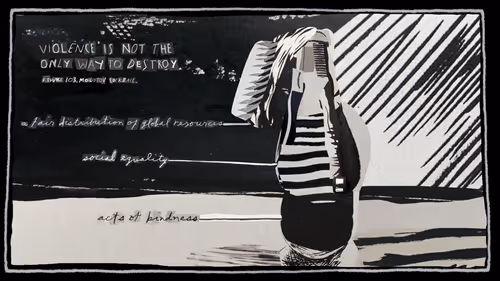 VIOLENCE IS NOT THE
ONLY WAY TO DESTROY.
fair distribution of global resources
social equality
acts of kindness